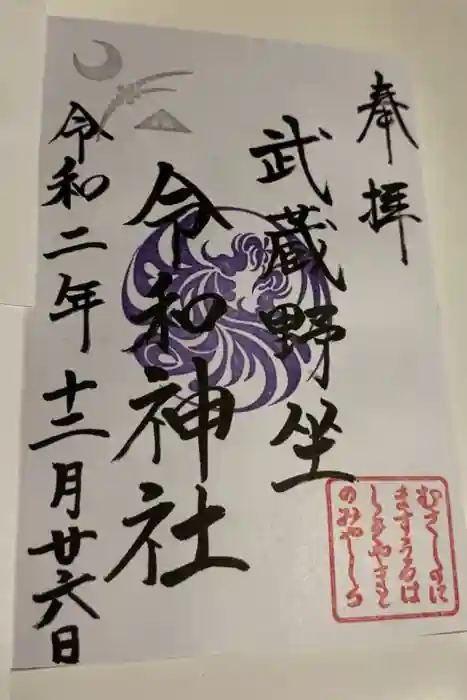 奉拝
武蔵野坐
令和神社
令和二年 十二月廿六日
むさしのに
ますうるは
しきやまと
のみやしろ